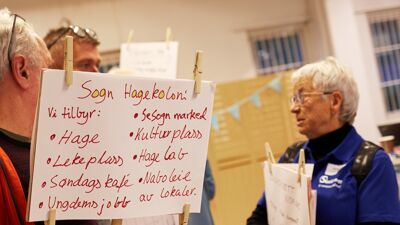 Sogn Hagekoloni
Vi tilbyr:
• Hage
• Lekeplass
• Søndagskafé
• Ungdomsjobb
• Sesogn marked
• Kulturplass
• Hage Lab
• Naboleie
av lokaler.